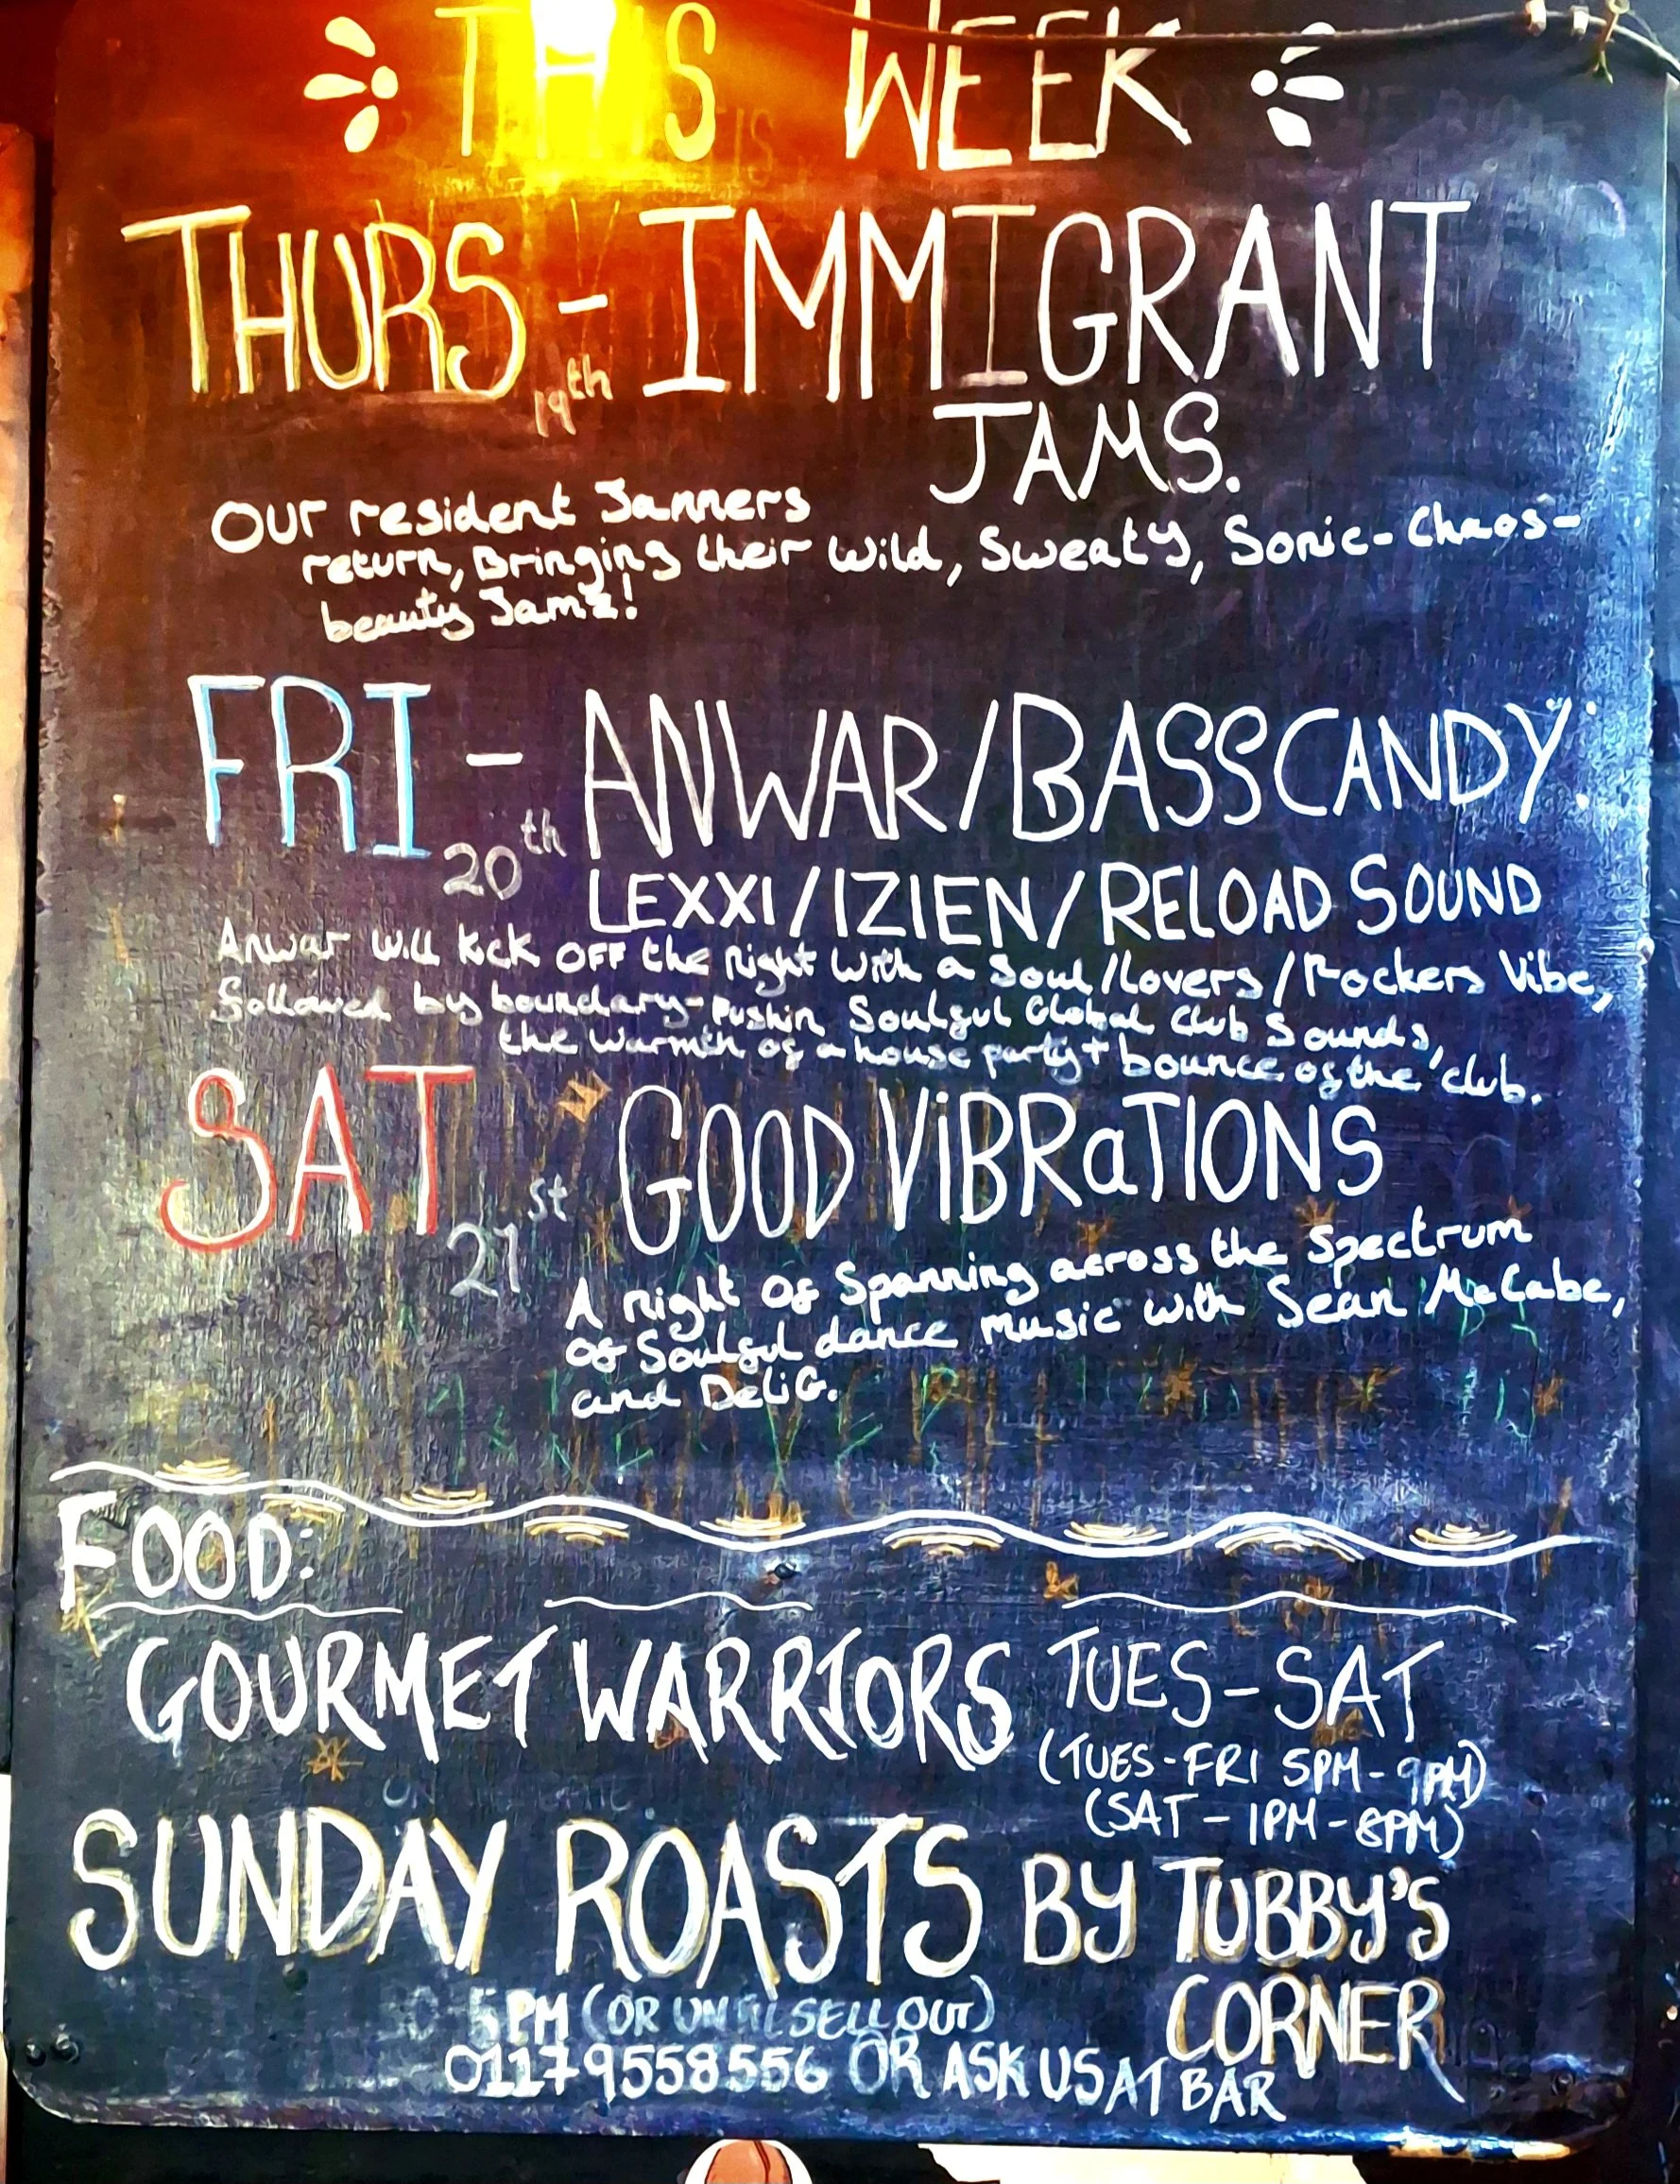 THIS WEEK
THURS - IMMIGRANT
19th
JAMS.
Our resident Jammers
return, Bringing their Wild, Sweaty, Sonic-Chaos-
beauty Jamz!
FRI - ANWAR/BASSCANDY:
20th
LEXXI/IZIEN/RELOAD SOUND
Anwar will kick OFF the Night With a Soul/Lovers/Rockers Vibe,
followed by boundary-pushin Soulful Global Club Sounds,
the warmth of a house party + bounce of the club.
SAT GOOD ViBRaTIONS
21st
A Night Of Spanning across the Spectrum
Of Soulful dance music with Sean McCabe,
and DeliG.
FOOD:
GOURMET WARRIORS TUES-SAT
(TUES-FRI 5PM-9PM)
(SAT-1PM-8PM)
SUNDAY ROASTS BY TUBBY'S
CORNER
5PM (OR UNTIL SELL OUT)
01179558556 OR ASK US AT BAR